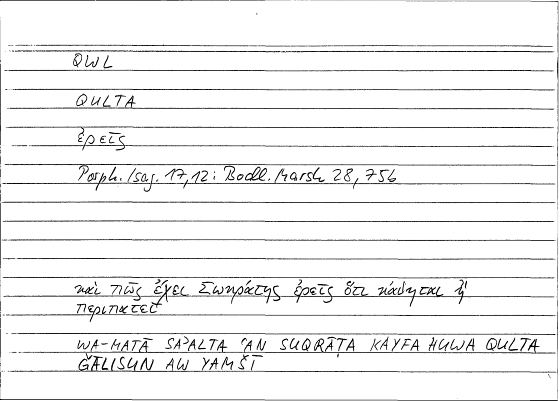 QWL
QULTA
ἐρεῖς
Porph. Isag. 17,12: Bodl. Marsh 28, 756
καὶ πῶς ἔχει Σωκράτης ἐρεῖς ὅτι κάθηται ἢ
περιπατεῖ
WA-MATĀ SAʾALTA ʿAN SUQRĀṬA KAYFA HUWA QULTA
ǦĀLISUN AW YAMŠĪ